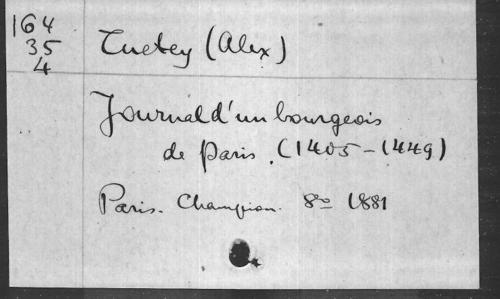 164
35
4
Tuetey (Alex)
Journal d'un bourgeois
de Paris. (1405-1449)
Paris. Champion. 8º 1881